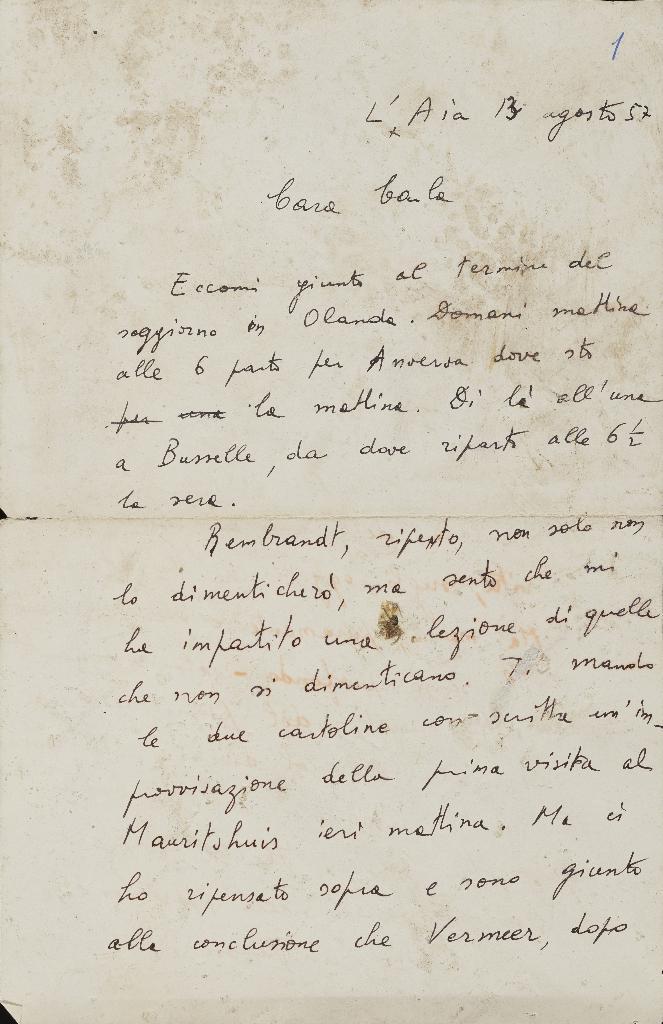 1
L'Aia 13 agosto 57
Cara Carla
Eccomi giunto al termine del
soggiorno in Olanda. Domani mattina
alle 6 parto per Anversa dove sto
per una la mattina. Di là all'una
a Busselle, da dove riparto alle 6 1/2
la sera.
Rembrandt, ripeto, non solo non
lo dimenticherò, ma sento che mi
ha impartito una lezione di quelle
che non si dimenticano. Ti mando
le due cartoline con scritta un'im-
provvisazione della prima visita al
Mauritshuis ieri mattina. Ma ci
ho ripensato sopra e sono giunto
alla conclusione che Vermeer, dopo